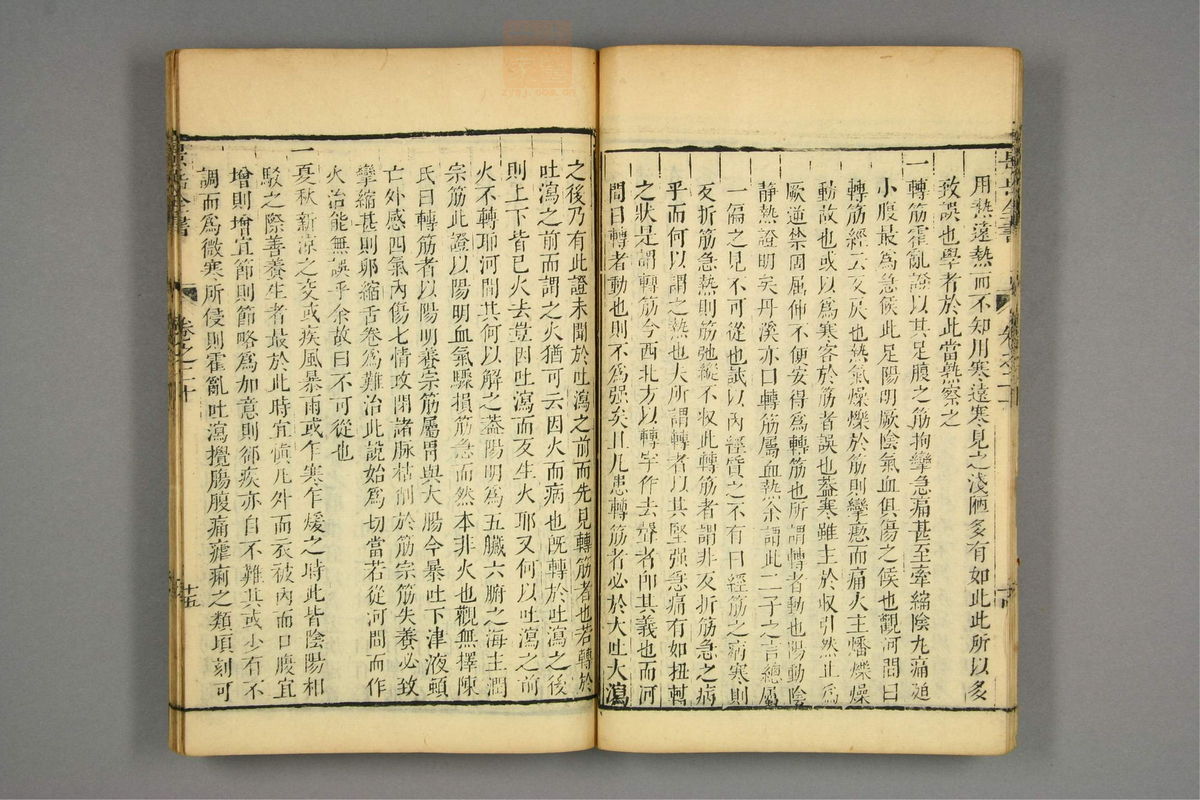 用熱遠熱而不知用寒遠寒見之淺陋多有如此此所以多
致誤也學者於此當熟察之
一轉筋霍亂證以其足腹之筋拘攣急痛甚至牽縮陰丸痛迫
小腹最為急候此足陽明厥陰氣血俱傷之候也觀河間曰
轉筋經云反戾也熱氣燥爍於筋則攣瘛而痛火主燔爍燥
動故也或以為寒客於筋者誤也蓋寒雖主於收引然止為
厥逆禁固屈伸不便安得為轉筋也所謂轉者動也陽動陰
静熱證明矣丹溪亦曰轉筋屬血熱余謂此二子之言總屬
一偏之見不可從也試以內經質之不有曰經筋之病寒則
反折筋急熱則筋弛縱不收此轉筋者謂非反折筋急之病
乎而何以謂之熱也夫所謂轉者以其堅强急痛有如扭轉
之狀是謂轉筋今西北方以轉字作去聲者卽其義也而河
間曰轉者動也則不為强矣且凡患轉筋者必於大吐大瀉
之後乃有此證未聞於吐瀉之前而先見轉筋者也若轉於
吐瀉之前而謂之火猶可云因火而病也旣轉於吐瀉之後
則上下皆已火去豈因吐瀉而反生火耶又何以吐瀉之前
火不轉耶河間其何以解之蓋陽明為五臟六腑之海主潤
宗筋此證以陽明血氣驟損筋急而然本非火也觀無擇陳
氏曰轉筋者以陽明養宗筋屬胃與大腸今暴吐下津液頓
亡外感四氣內傷七情攻閉諸脉枯削於筋宗筋失養必致
攣縮甚則卵縮舌卷為難治此說始為切當若從河間而作
火治能無誤乎余故曰不可從也
一夏秋新凉之交或疾風暴雨或乍寒乍煖之時此皆陰陽相
駁之際善養生者最於此時宜愼凡外而衣被內而口腹宜
增則增宜節則節略為加意則卻疾亦自不難其或少有不
調而為微寒所侵則霍亂吐瀉攪腸腹痛瘧痢之類頃刻可
景岳全書
卷之二十